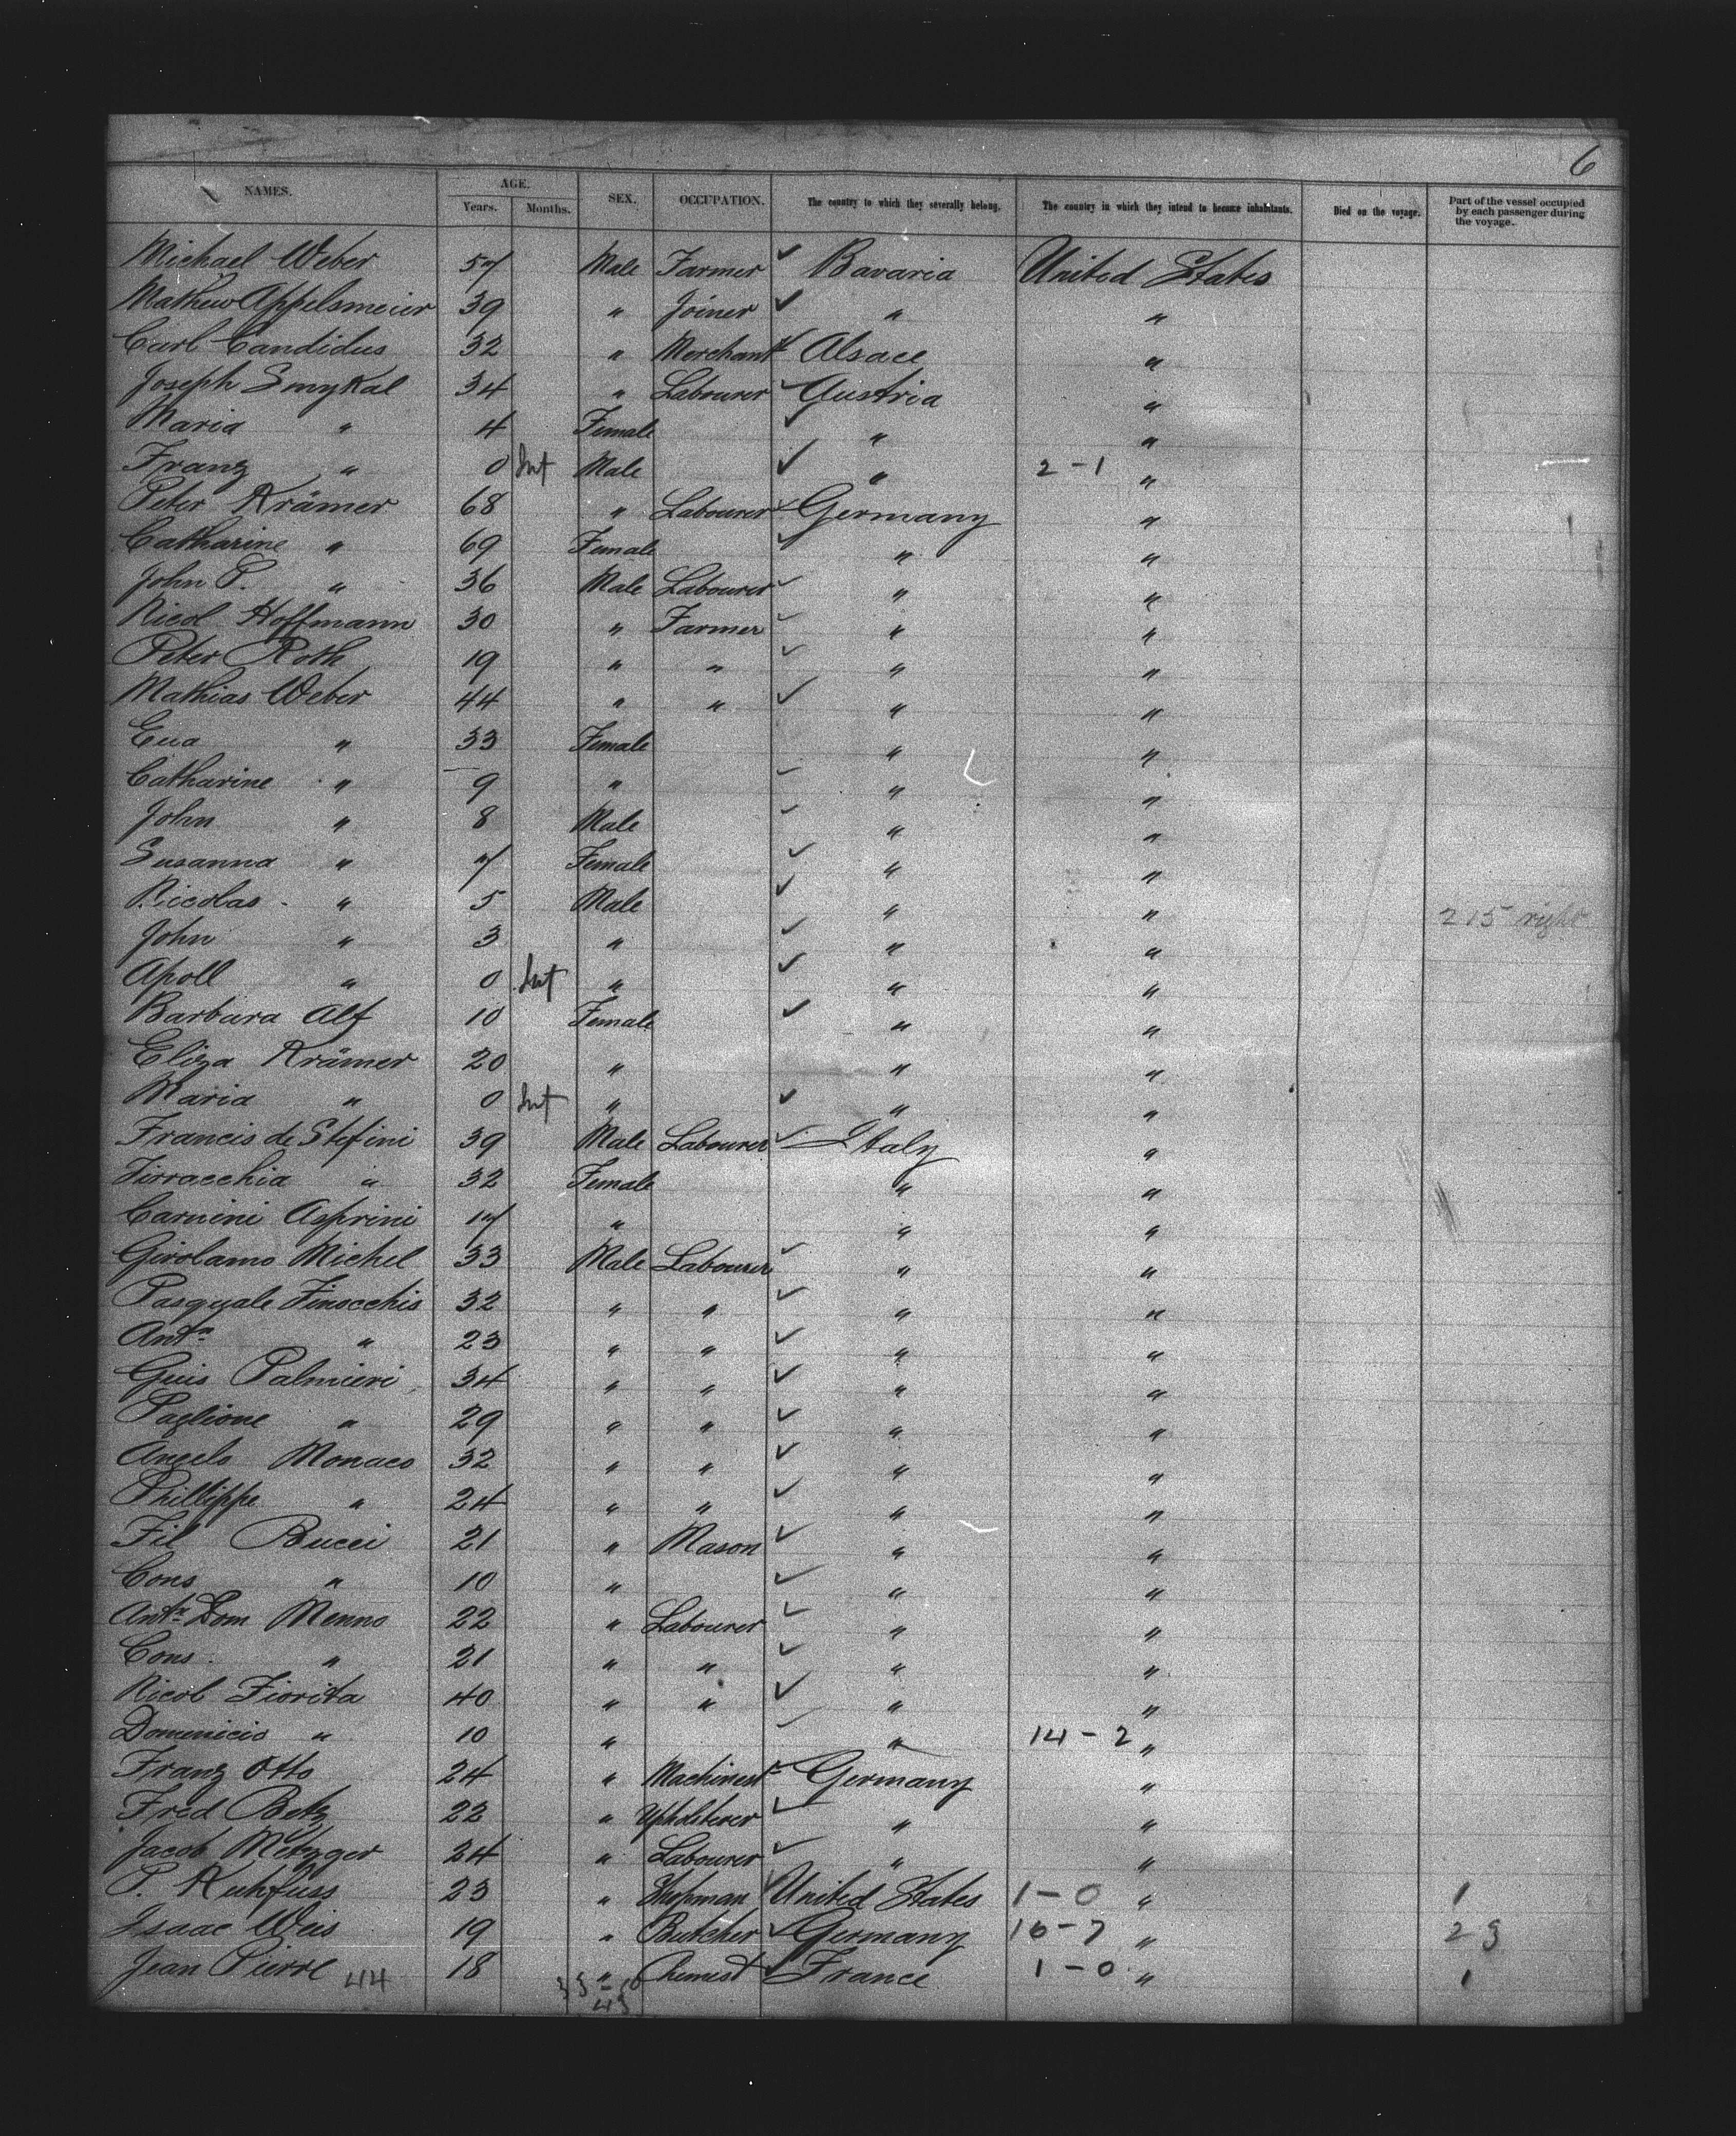 6
NAMES. AGE. SEX. OCCUPATION. The country to which they severally belong. The country in which they intend to become inhabitants. Died on the voyage. Part of the vessel occupied by each passenger during the voyage.
Years. Months.
Michael Weber 57 Male Farmer ✓ Bavaria United States
Mathew Appelsmeier 39 " Joiner ✓ " "
Carl Candidus 32 " Merchant ✓ Alsace "
Joseph Smykal 34 " Labourer ✓ Austria "
Maria " 4 Female ✓ " "
Franz " 0 Inf Male ✓ " 2-1 "
Peter Krämer 68 " Labourer ✓ Germany "
Catharine " 69 Female ✓ " "
John P. " 36 Male Labourer ✓ " "
Nicol Hoffmann 30 " Farmer ✓ " "
Peter Roth 19 " " ✓ " "
Mathias Weber 44 " " ✓ " "
Eva " 33 Female " "
Catharine " 9 " ✓ " "
John " 8 Male ✓ " "
Susanna " 7 Female ✓ " "
Nicolas " 5 Male ✓ " " 215 right
John " 3 " ✓ " "
Apoll " 0 Inf " ✓ " "
Barbara Alf 10 Female ✓ " "
Eliza Krämer 20 " " "
Maria " 0 Inf " ✓ " "
Francis de Stefini 39 Male Labourer ✓ Italy "
Tirracchia " 32 Female " "
Carnini Asprini 17 " " "
Girolamo Michel 33 Male Labourer ✓ " "
Pasquale Finocchio 32 " " ✓ " "
Anto " 23 " " ✓ " "
Guis Palmieri 34 " " ✓ " "
Paglione " 29 " " ✓ " "
Angelo Monaco 32 " " ✓ " "
Phillippe " 24 " " ✓ " "
Fil Bucci 21 " Mason ✓ " "
Cons " 10 " ✓ " "
Anto Dom Menno 22 " Labourer ✓ " "
Cons. " 21 " " ✓ " "
Nicol Fiorita 40 " " ✓ " "
Domenicio " 10 " ✓ " 14-2 "
Franz Otto 24 " Machinest ✓ Germany "
Fred Betz 22 " Upholsterer ✓ " "
Jacob Metzger 24 " Labourer ✓ " "
P. Kuhfuss 23 " Shopman ✓ United States 1-0 " 1
Isaac Weis 19 " Butcher ✓ Germany 16-7 " 23
Jean Pierre 44 18 " Chemist ✓ France 1-0 " 1